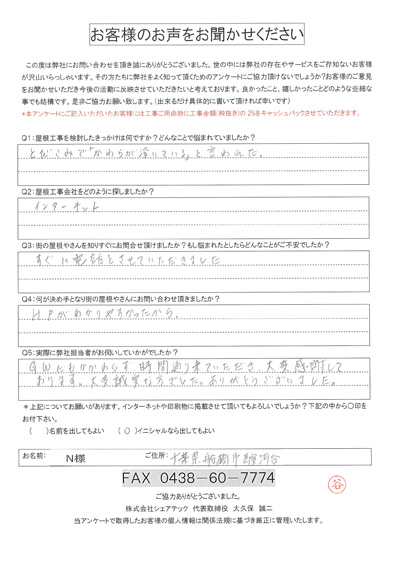 お客様のお声をお聞かせください
この度は弊社にお問い合わせを頂き誠にありがとうございました。世の中には弊社の存在やサービスをご存知ないお客様
が沢山いらっしゃいます。その方たちに弊社をよく知って頂くためのアンケートにご協力頂けないでしょうか?お客様のご意見
をお聞かせいただき今後の活動に反映させていただきたいと考えております。良かったこと、嬉しかったことどのような些細な
事でも結構です。是非ご協力お願い致します。(出来るだけ具体的に書いて頂ければ幸いです)
*本アンケートにご記入いただいたお客様には工事ご用命時に工事金額(税抜き)の2%をキャッシュバックさせていただきます。
Q1:屋根工事を検討したきっかけは何ですか?どんなことで悩まれていましたか?
とびこみで「かわらが浮いている」と言われた。
Q2:屋根工事会社をどのように探しましたか?
インターネット
Q3:街の屋根やさんを知りすぐにお問合せ頂けましたか?もし悩まれたとしたらどんなことがご不安でしたか?
すぐに電話をさせていただきました
Q4:何が決め手となり街の屋根やさんにお問い合わせ頂きましたか?
HPがわかりやすかったから。
Q5:実際に弊社担当者がお伺いしていかがでしたか?
GWにもかかわらず、時間通り来ていただき、大変感謝して
おります。大変誠実な方でした。ありがとうございました。
*上記についてお願いがあります。インターネットや印刷物に掲載させて頂いてもよろしいでしょうか?下記の中から〇印を
お付け下さい。
( )名前を出してもよい (○)イニシャルなら出してもよい
お名前: N様 ご住所: 千葉県船橋市
FAX 0438-60-7774
ご協力ありがとうございました。
谷
株式会社シェアテック 代表取締役 大久保 誠二
当アンケートで取得したお客様の個人情報は関係法規に基づき厳正に管理いたします。